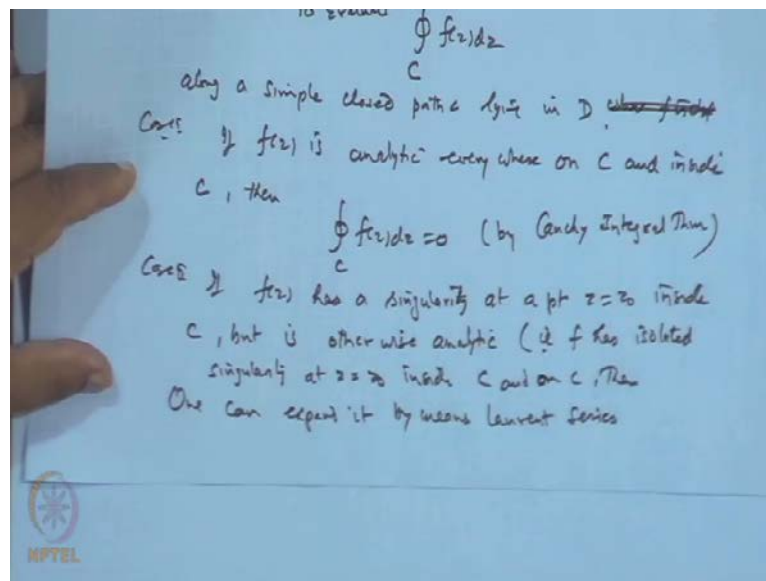 to evaluate
∮ f(z)dz
C
along a simple closed path c lying in D,
Case I If f(z) is analytic every where on C and inside
C, then
∮ f(z)dz = 0 (by Cauchy Integral Thm)
C
Case II If f(z) has a singularity at a pt z = z0 inside
C, but is otherwise analytic (ie f has isolated
singularity at z = z0 inside C and on C, Then
One can expand it by means Laurent Series
NPTEL